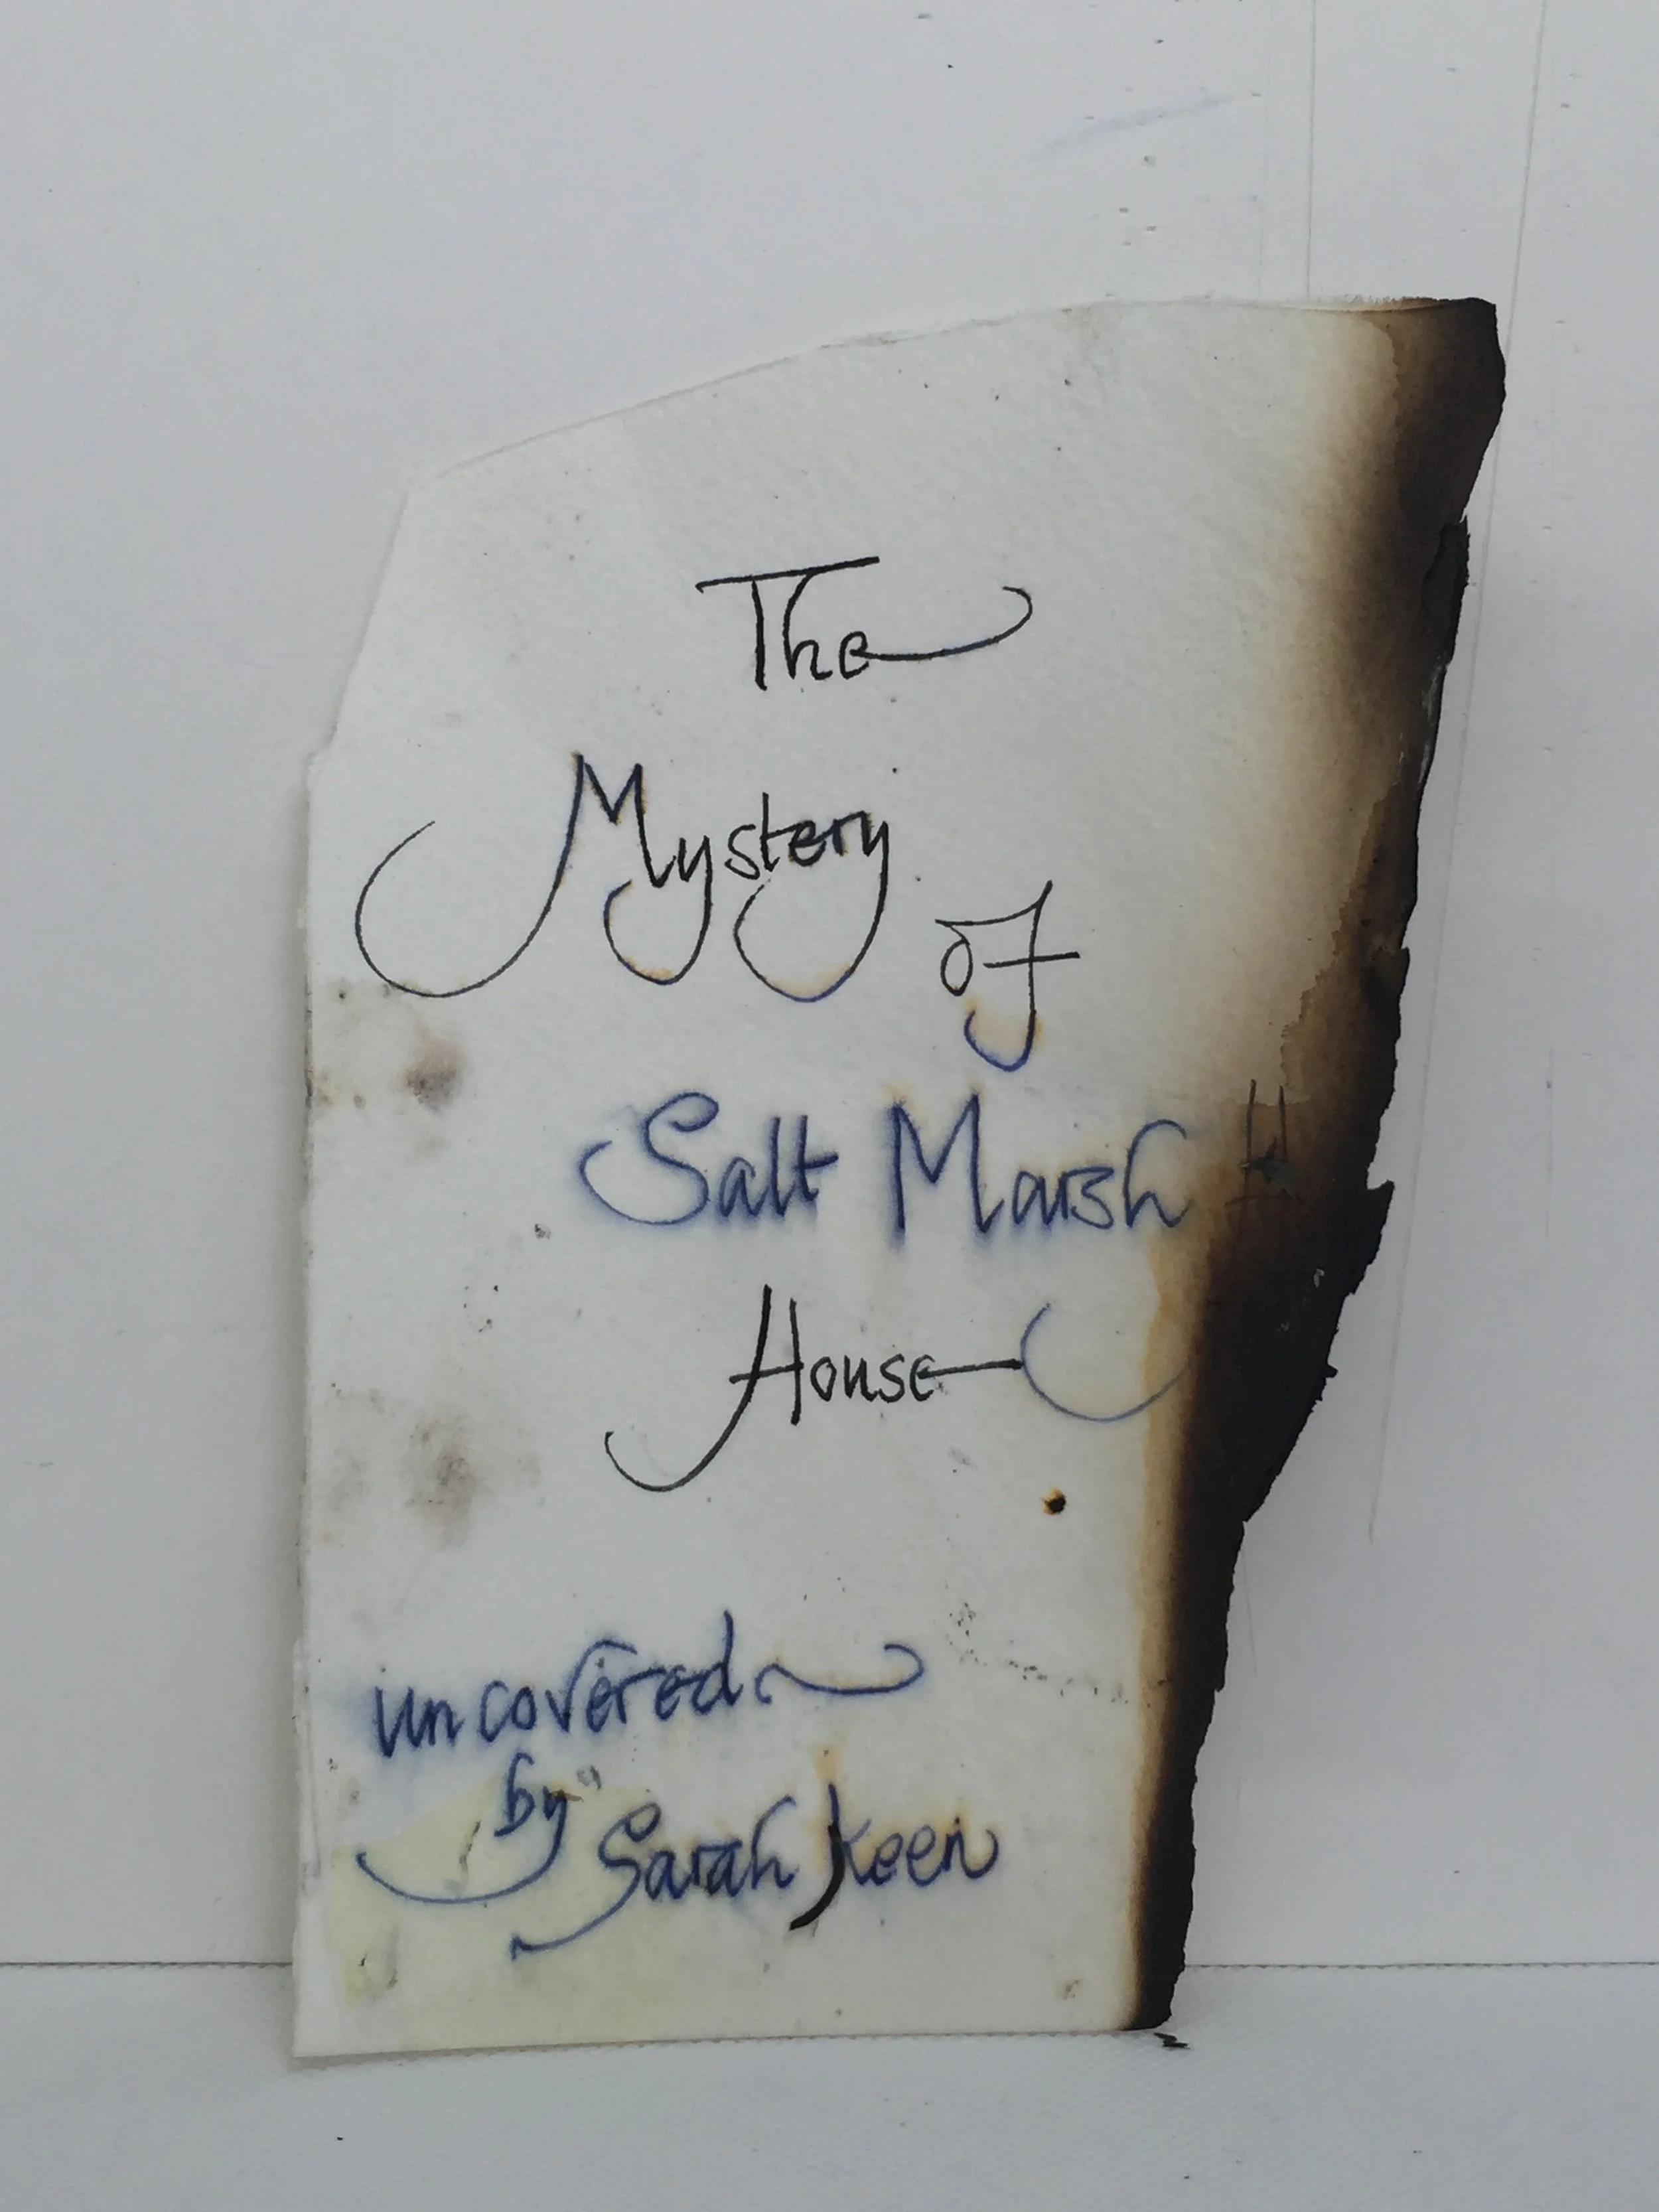 The
Mystery
of
Salt Marsh H
House
uncovered
by
Sarah Keen